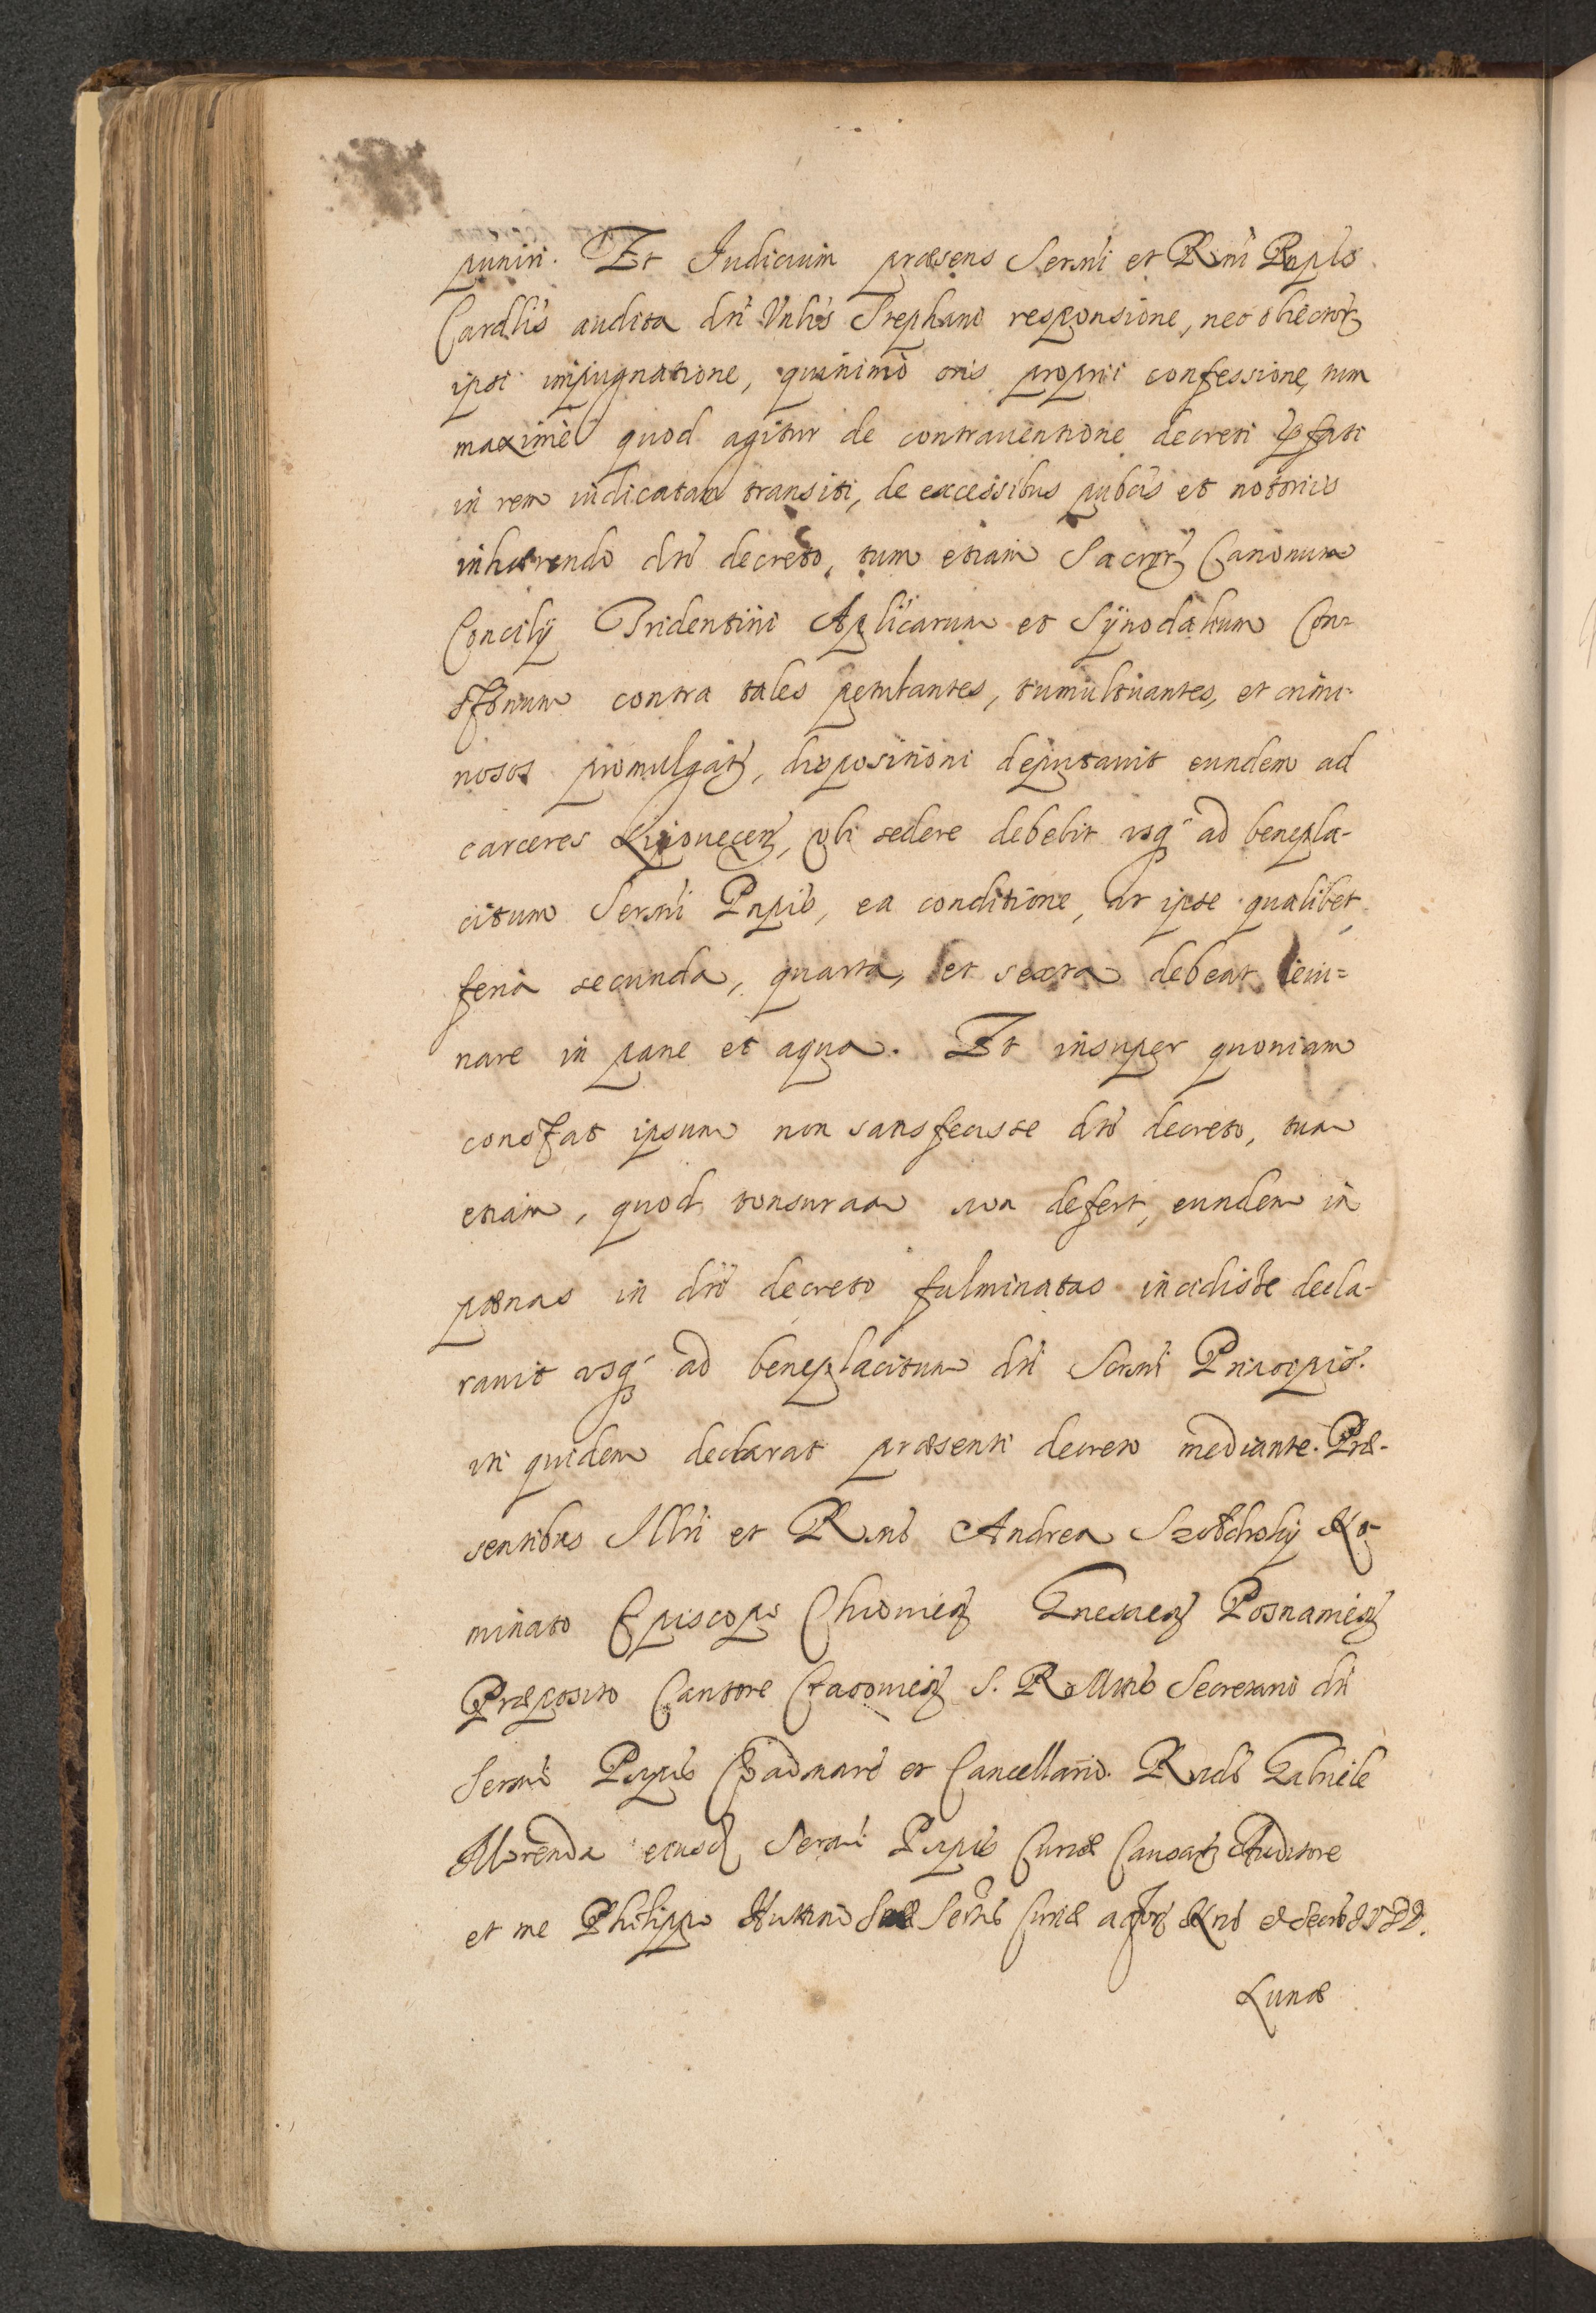 puniri. Et Iudicium præsens Sermi et Rmi Pnpis
Cardlis audita dti Vnlis Stephani responsione, nec obiector
ipsi impugnatione, quinimo oris proprii confessione, tum
maximè quod agitur de contrauentione decreti pfati
in rem iudicatam transiti, de excessibus pubcis et notoriis
inhærendo dto decreto, tum etiam Sacror Canonum
Concilÿ Tridentini Aplicarum et Sÿnodalium Con=
stfonum contra tales petulantes, tumultuantes, et crimi-
nosos promulgatar, dispositioni deputauit eundem ad
carceres Lipouecen, vbi sedere debebit vsq ad benepla-
citum Sermi Pnpis, ea conditione, ut ipse qualibet
feria secunda, quarta, et sexta debeat ieiu=
nare in pane et aqua. Et insuper quoniam
constat ipsum non satisfecisse dto decreto, tum
etiam, quod tonsuram non defert, eundem in
pœnas in dto decreto fulminatas incidisse decla-
rauit vsq ad beneplacitum dti Sermi Principis.
uti quidem declarat præsenti decreto mediante. Præ-
sentibus Illri et Rmo Andrea Szołdrsky No-
minato Episcopo Chiouien Gnesnen Posnanien
Præposito Cantore Cracouien S. R. Mttis Secretario dti
Sermi Pnpis et Cancellario. Rndo Gabriele
Morenda eiusd Sermi Pnpis Curiæ Causar Auditore
et me Philippo Suæ Sertis Curiæ actor Nrio
Lunæ